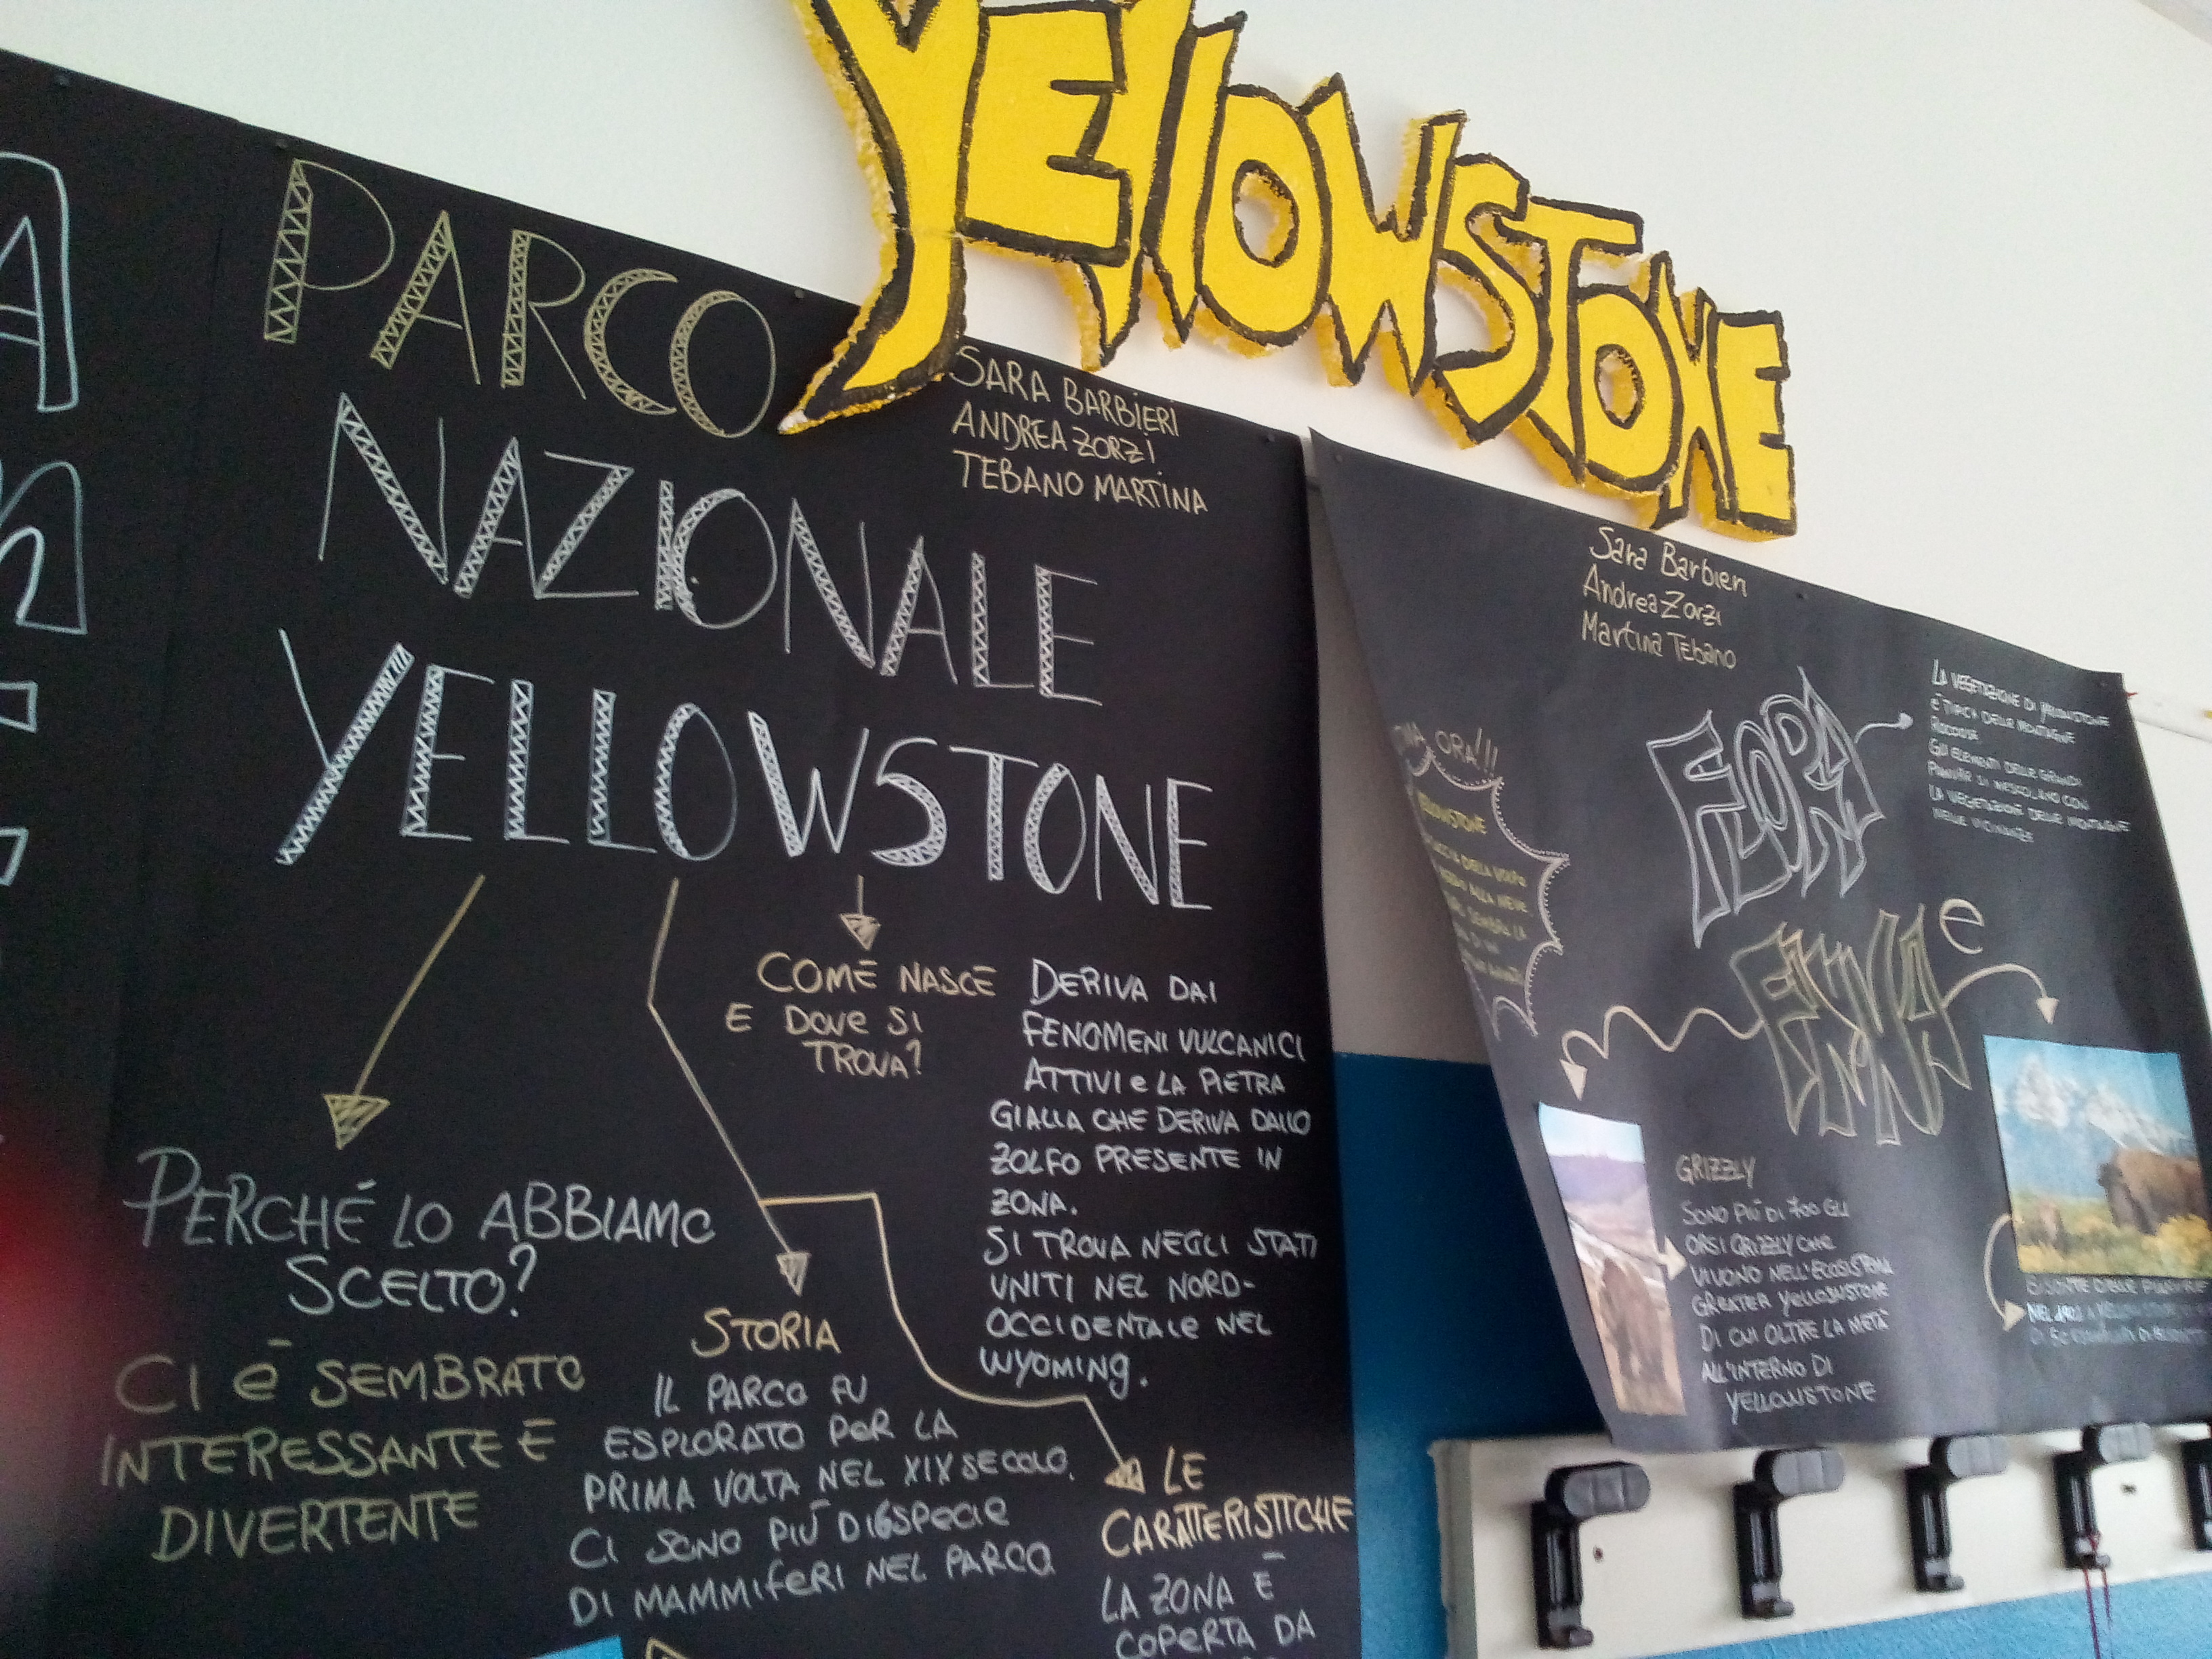 YELLOWSTONE
PARCO
NAZIONALE
YELLOWSTONE
SARA BARBIERI
ANDREA ZORZI
TEBANO MARTINA
PERCHÉ LO ABBIAMO
SCELTO?
CI È SEMBRATO
INTERESSANTE E
DIVERTENTE
STORIA
IL PARCO FU
ESPLORATO PER LA
PRIMA VOLTA NEL XIX SECOLO.
CI SONO PIÙ DI 6 SPECIE
DI MAMMIFERI NEL PARCO
COME NASCE
E DOVE SI
TROVA?
DERIVA DAI
FENOMENI VULCANICI
ATTIVI e LA PIETRA
GIALLA CHE DERIVA DALLO
ZOLFO PRESENTE IN
ZONA.
SI TROVA NEGLI STATI
UNITI NEL NORD-
OCCIDENTALE NEL
WYOMING.
LE
CARATTERISTICHE
LA ZONA È
COPERTA DA
Sara Barbieri
Andrea Zorzi
Martina Tebano
ORA!!!
YELLOWSTONE
DELLA VOLPE
ALLA NEVE
SEMBRA LA
FLORA
LA VEGETAZIONE DI YELLOWSTONE
È TIPICA DELLE MONTAGNE
ROCCIOSE
GLI ELEMENTI DELLE GRANDI
PIANURE SI MESCOLANO CON
LA VEGETAZIONE DELLE MONTAGNE
NELLE VICINANZE
e
FAUNA
GRIZZLY
SONO PIÙ DI 700 GLI
ORSI GRIZZLY CHE
VIVONO NELL'ECOSISTEMA
GREATER YELLOWSTONE
DI CUI OLTRE LA METÀ
ALL'INTERNO DI
YELLOWSTONE
NEL 1902 A YELLOWSTONE